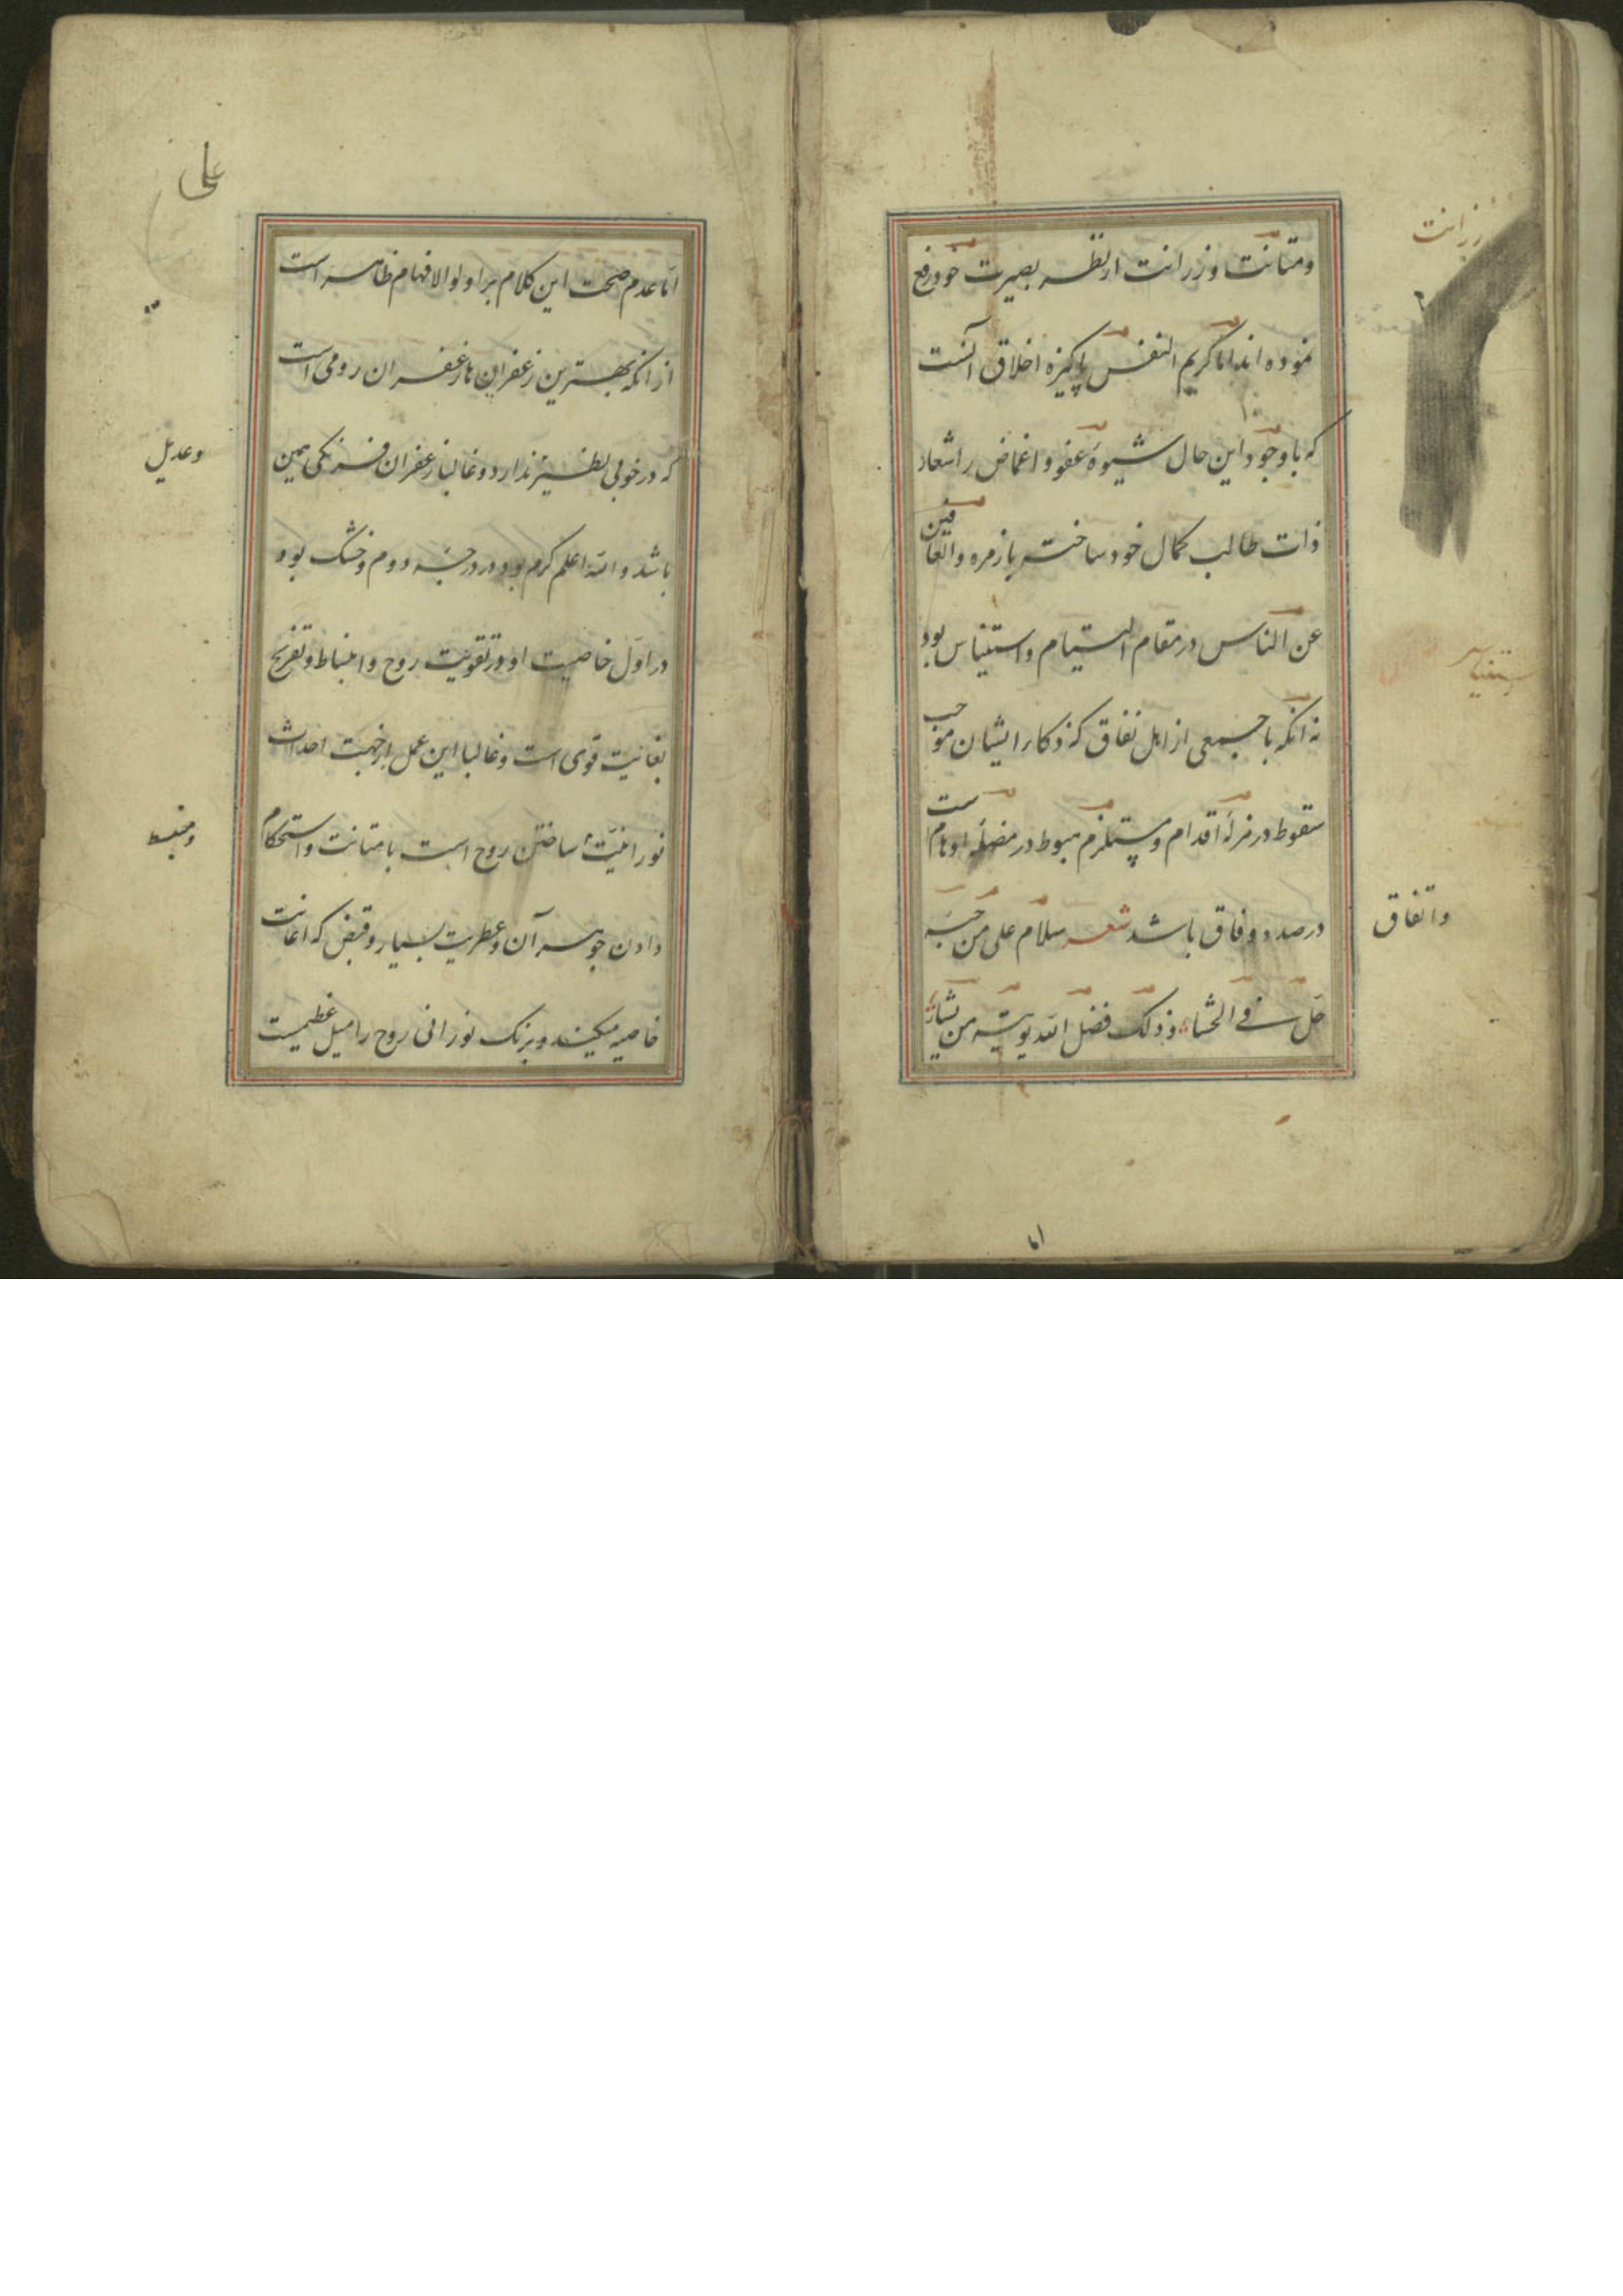 ومتانت و زرانت از نظر بصیرت خود رفع
نموده اند اما کریم النفس پاکیزه اخلاق آنست
که با وجود این حال شیوهٔ عفو و اغماض را شعار
ذات طالب کمال خود ساخته با زمره والعافین
عن الناس در مقام التیام و استیناس بود
نه انکه با جمعی از اهل نفاق که ذکار ایشان موجب
سقوط در مزلّهٔ اقدام و مستلزم هبوط در مضلّهٔ اوهام است
در صدد وفاق باشد شعر سلام علی من حبّه
حلّ فی الحشاء و ذلک فضل الله یوتیه من یشاء
زرانت
واتفاق
علی
اما عدم صحت این کلام بر اولوالافهام ظاهر است
از انکه بهترین زعفران ها زعفران رومی است
که در خوبی نظیر ندارد و غالبا زعفران فرنکی همین
باشد والله اعلم کرم بود در درجه دوم و خشک بود
در اول خاصیت او در تقویت روح و انبساط و تفریح
بغایت قوی است و غالبا این عمل از جهت احداث
نورانیّت ساختن روح است با متانت و استحکام
دادن جوهر آن و عطریت بسیار و قبض که اعانت
خاصیه میکند و برنک نورانی روح را میل عظیمیست
وعدیل
ومنبسط